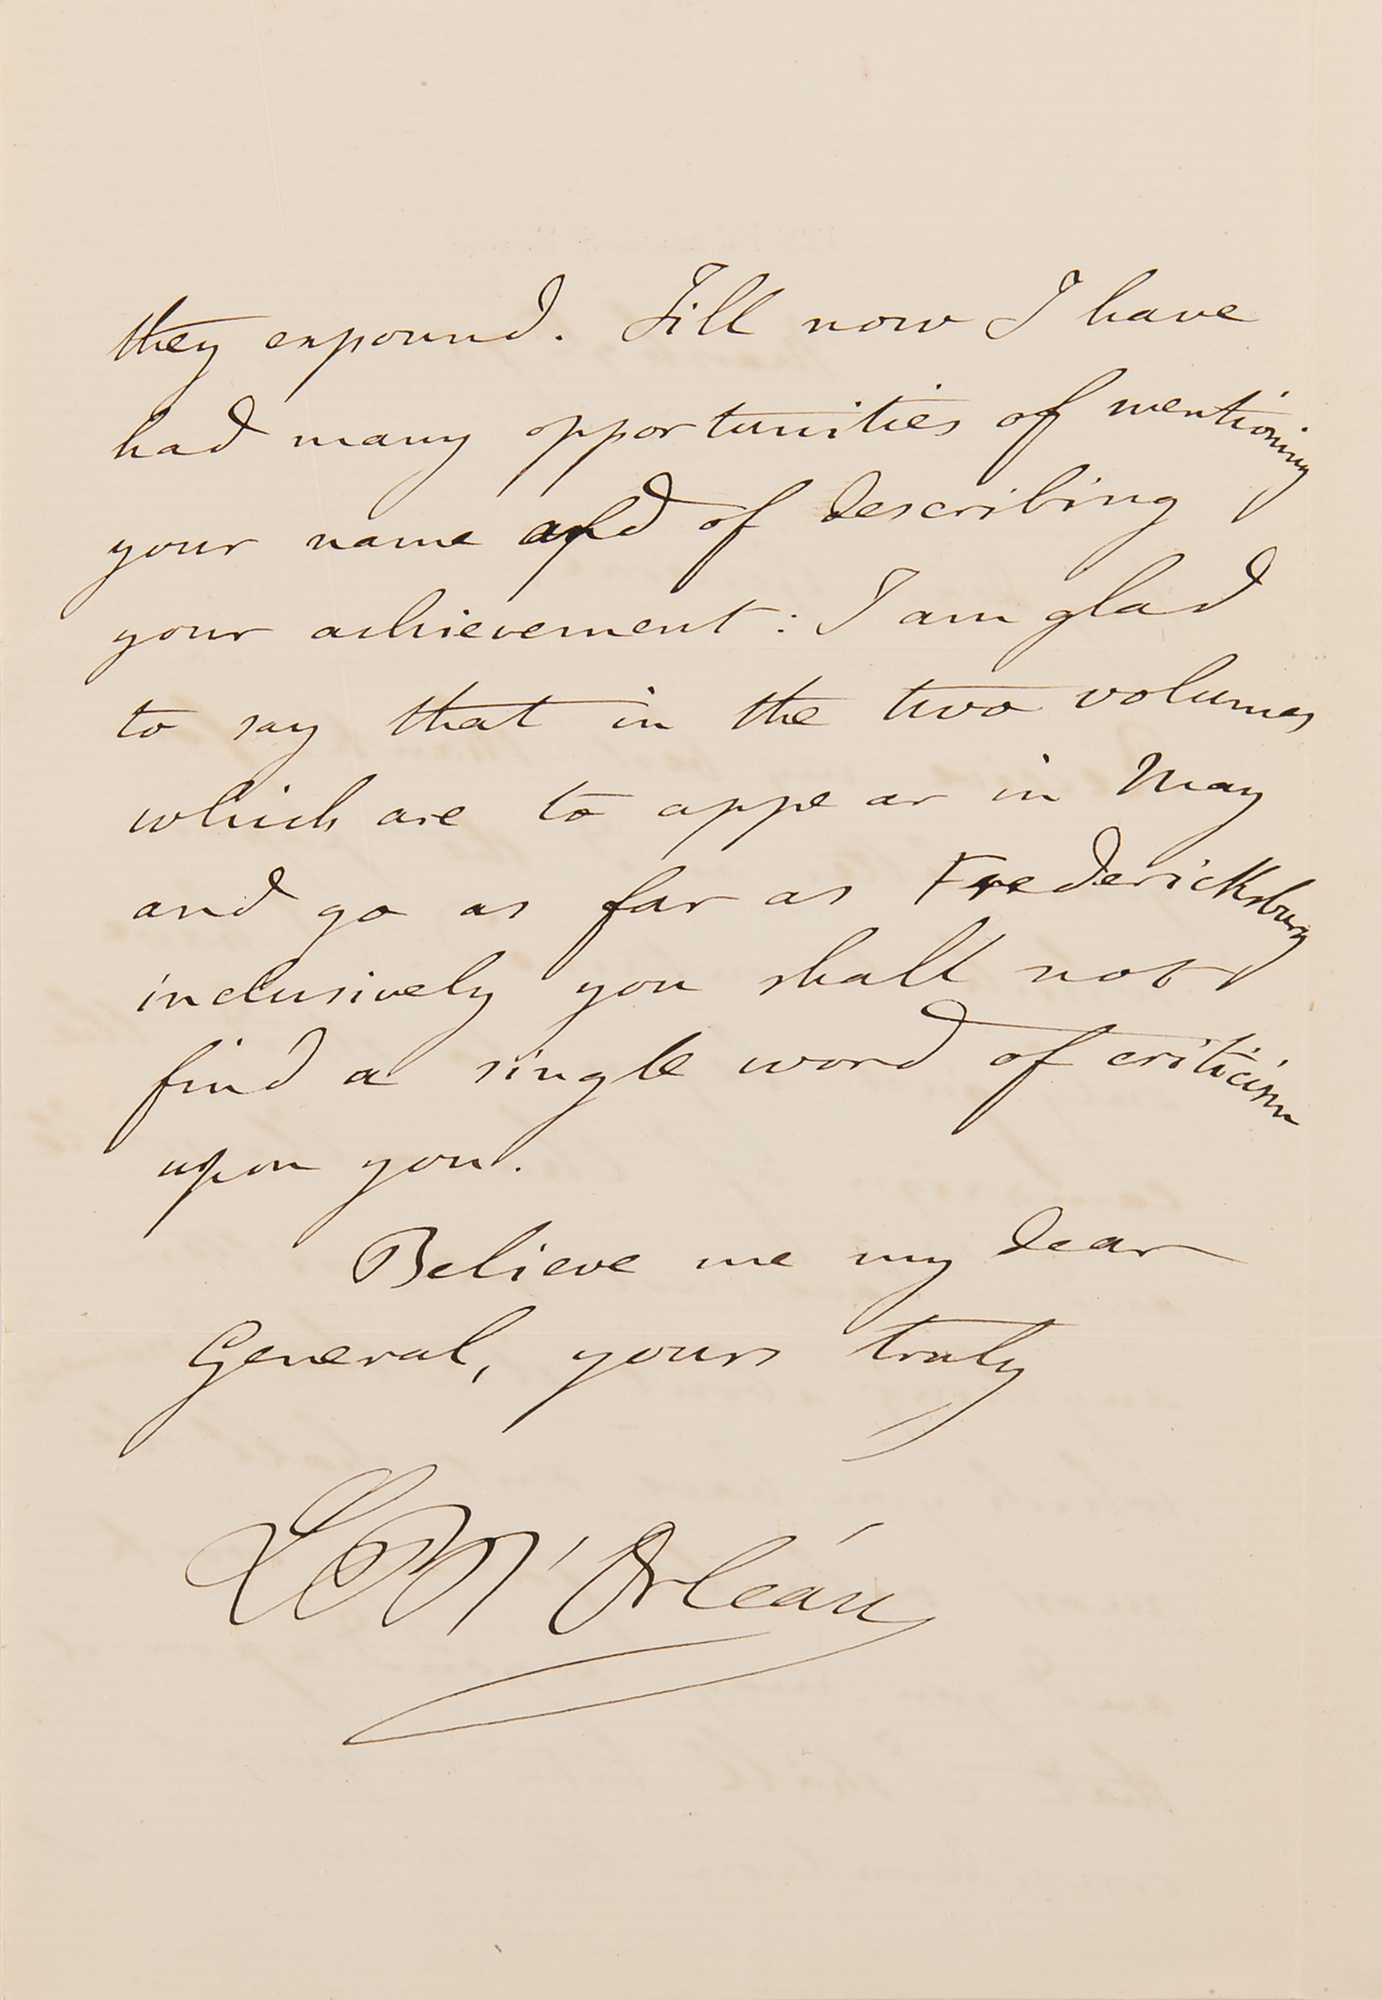 they expound. Till now I have
had many opportunities of mentioning
your name and of describing
your achievement: I am glad
to say that in the two volumes
which are to appear in May
and go as far as Fredericksburg
inclusively you shall not
find a single word of criticism
upon you.
Believe me my dear
General, yours truly
d'Orléans